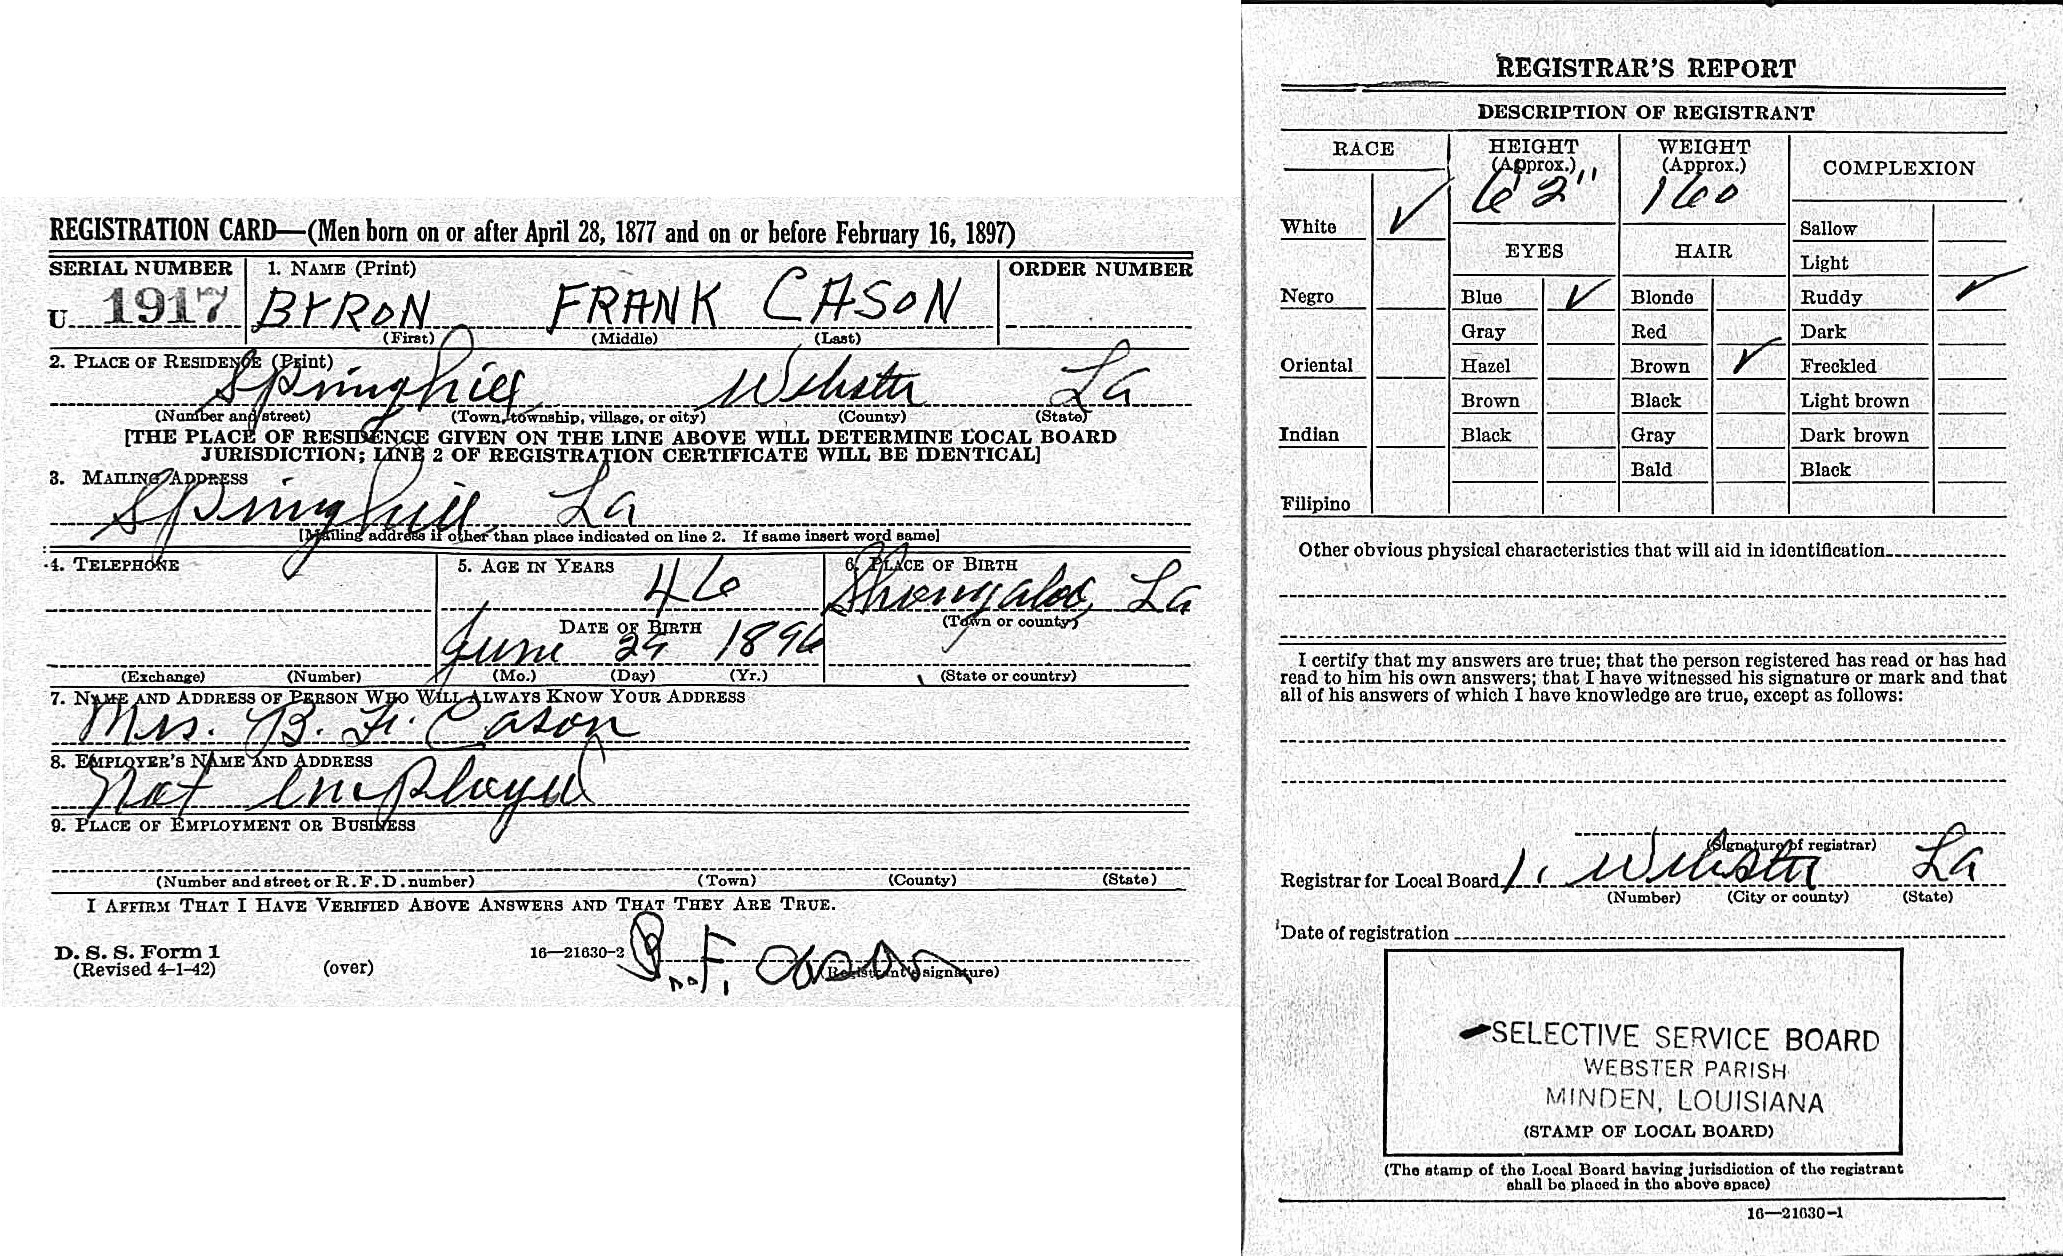 REGISTRATION CARD—(Men born on or after April 28, 1877 and on or before February 16, 1897)
SERIAL NUMBER 1. NAME (Print) ORDER NUMBER
U 1917 BYRON FRANK CASON
(First) (Middle) (Last)
2. PLACE OF RESIDENCE (Print)
Springhill Webster La
(Number and street) (Town, township, village, or city) (County) (State)
[THE PLACE OF RESIDENCE GIVEN ON THE LINE ABOVE WILL DETERMINE LOCAL BOARD
JURISDICTION; LINE 2 OF REGISTRATION CERTIFICATE WILL BE IDENTICAL]
3. MAILING ADDRESS
Springhill, La
[Mailing address if other than place indicated on line 2. If same insert word same]
4. TELEPHONE 5. AGE IN YEARS 6. PLACE OF BIRTH
46 Shongaloo, La
DATE OF BIRTH (Town or county)
June 29 1896
(Exchange) (Number) (Mo.) (Day) (Yr.) (State or country)
7. NAME AND ADDRESS OF PERSON WHO WILL ALWAYS KNOW YOUR ADDRESS
Mrs. B. F. Cason
8. EMPLOYER'S NAME AND ADDRESS
Not Employed
9. PLACE OF EMPLOYMENT OR BUSINESS
(Number and street or R. F. D. number) (Town) (County) (State)
I AFFIRM THAT I HAVE VERIFIED ABOVE ANSWERS AND THAT THEY ARE TRUE.
D. S. S. Form 1
(Revised 4-1-42) (over) 16—21630-2 B. F. Cason
(Registrant's signature)
REGISTRAR'S REPORT
DESCRIPTION OF REGISTRANT
RACE HEIGHT (Approx.) WEIGHT (Approx.) COMPLEXION
6 2" 160
White ✓ Sallow
EYES HAIR Light
Negro Blue ✓ Blonde Ruddy ✓
Gray Red Dark
Oriental Hazel Brown ✓ Freckled
Brown Black Light brown
Indian Black Gray Dark brown
Bald Black
Filipino
Other obvious physical characteristics that will aid in identification
I certify that my answers are true; that the person registered has read or has had
read to him his own answers; that I have witnessed his signature or mark and that
all of his answers of which I have knowledge are true, except as follows:
(Signature of registrar)
Registrar for Local Board 1. Webster La
(Number) (City or county) (State)
Date of registration
SELECTIVE SERVICE BOARD
WEBSTER PARISH
MINDEN, LOUISIANA
(STAMP OF LOCAL BOARD)
(The stamp of the Local Board having jurisdiction of the registrant
shall be placed in the above space)
16—21630-1